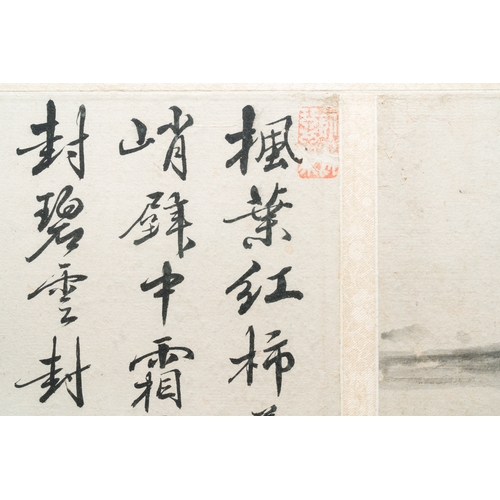 楓葉紅柿
峭壁中霜
封碧雲封